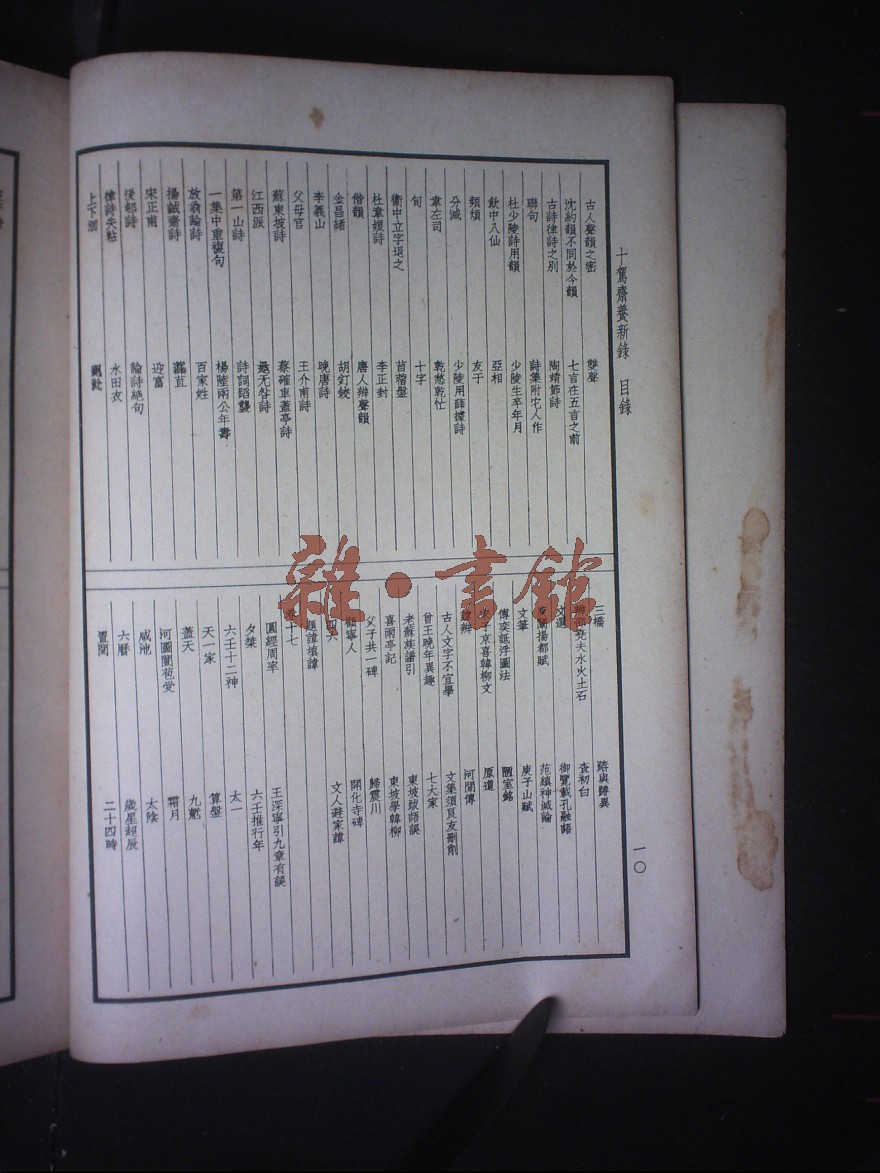 十駕齋養新錄 目錄
一〇
古人聲韻之密 雙聲
沈約韻不同於今韻 七言在五言之前
古詩律詩之别 陶靖節詩
聯句 詩集附它人作
杜少陵詩用韻 少陵生卒年月
飲中八仙 亞相
頻煩 友于
分減 少陵用薛據詩
韋左司 乾愁乾忙
旬 十字
衞中立字退之 苜蓿盤
杜韋娘詩 李正封
借韻 唐人辨聲韻
金昌緒 胡釘鉸
李義山 晚唐詩
父母官 王介甫詩
蘇東坡詩 蔡確車蓋亭詩
江西派 晁无咎詩
第一山詩 詩詞蹈襲
一集中重複句 楊陸兩公年壽
放翁論詩 百家姓
楊誠齋詩
宋正甫 迎富
後邨詩 論詩絕句
律詩失粘 水田衣
上下
三橋 路與跨異
堯夫水火土石 查初白
文選 御覽載孔融語
庾闡揚都賦 范縝神滅論
文筆 庾子山賦
傅奕詆浮圖法 陋室銘
宋子京喜韓柳文 原道
辨 河間傳
古人文字不宜學 文集須良友刪削
曾王晚年異趣 七大家
老蘇族譜引 東坡跋語誤
喜雨亭記 東坡學韓柳
父子共一碑 歸震川
顧寧人 開化寺碑
四六 文人避家諱
題諱填諱
卷十七
圓經周率 王深寧引九章有誤
夕桀 六壬推行年
六壬十二神 太一
天一家 算盤
蓋天 九魁
河圖闓苞受 霜月
咸池 太陰
六曆 歲星超辰
置閏 二十四時
雜·書館